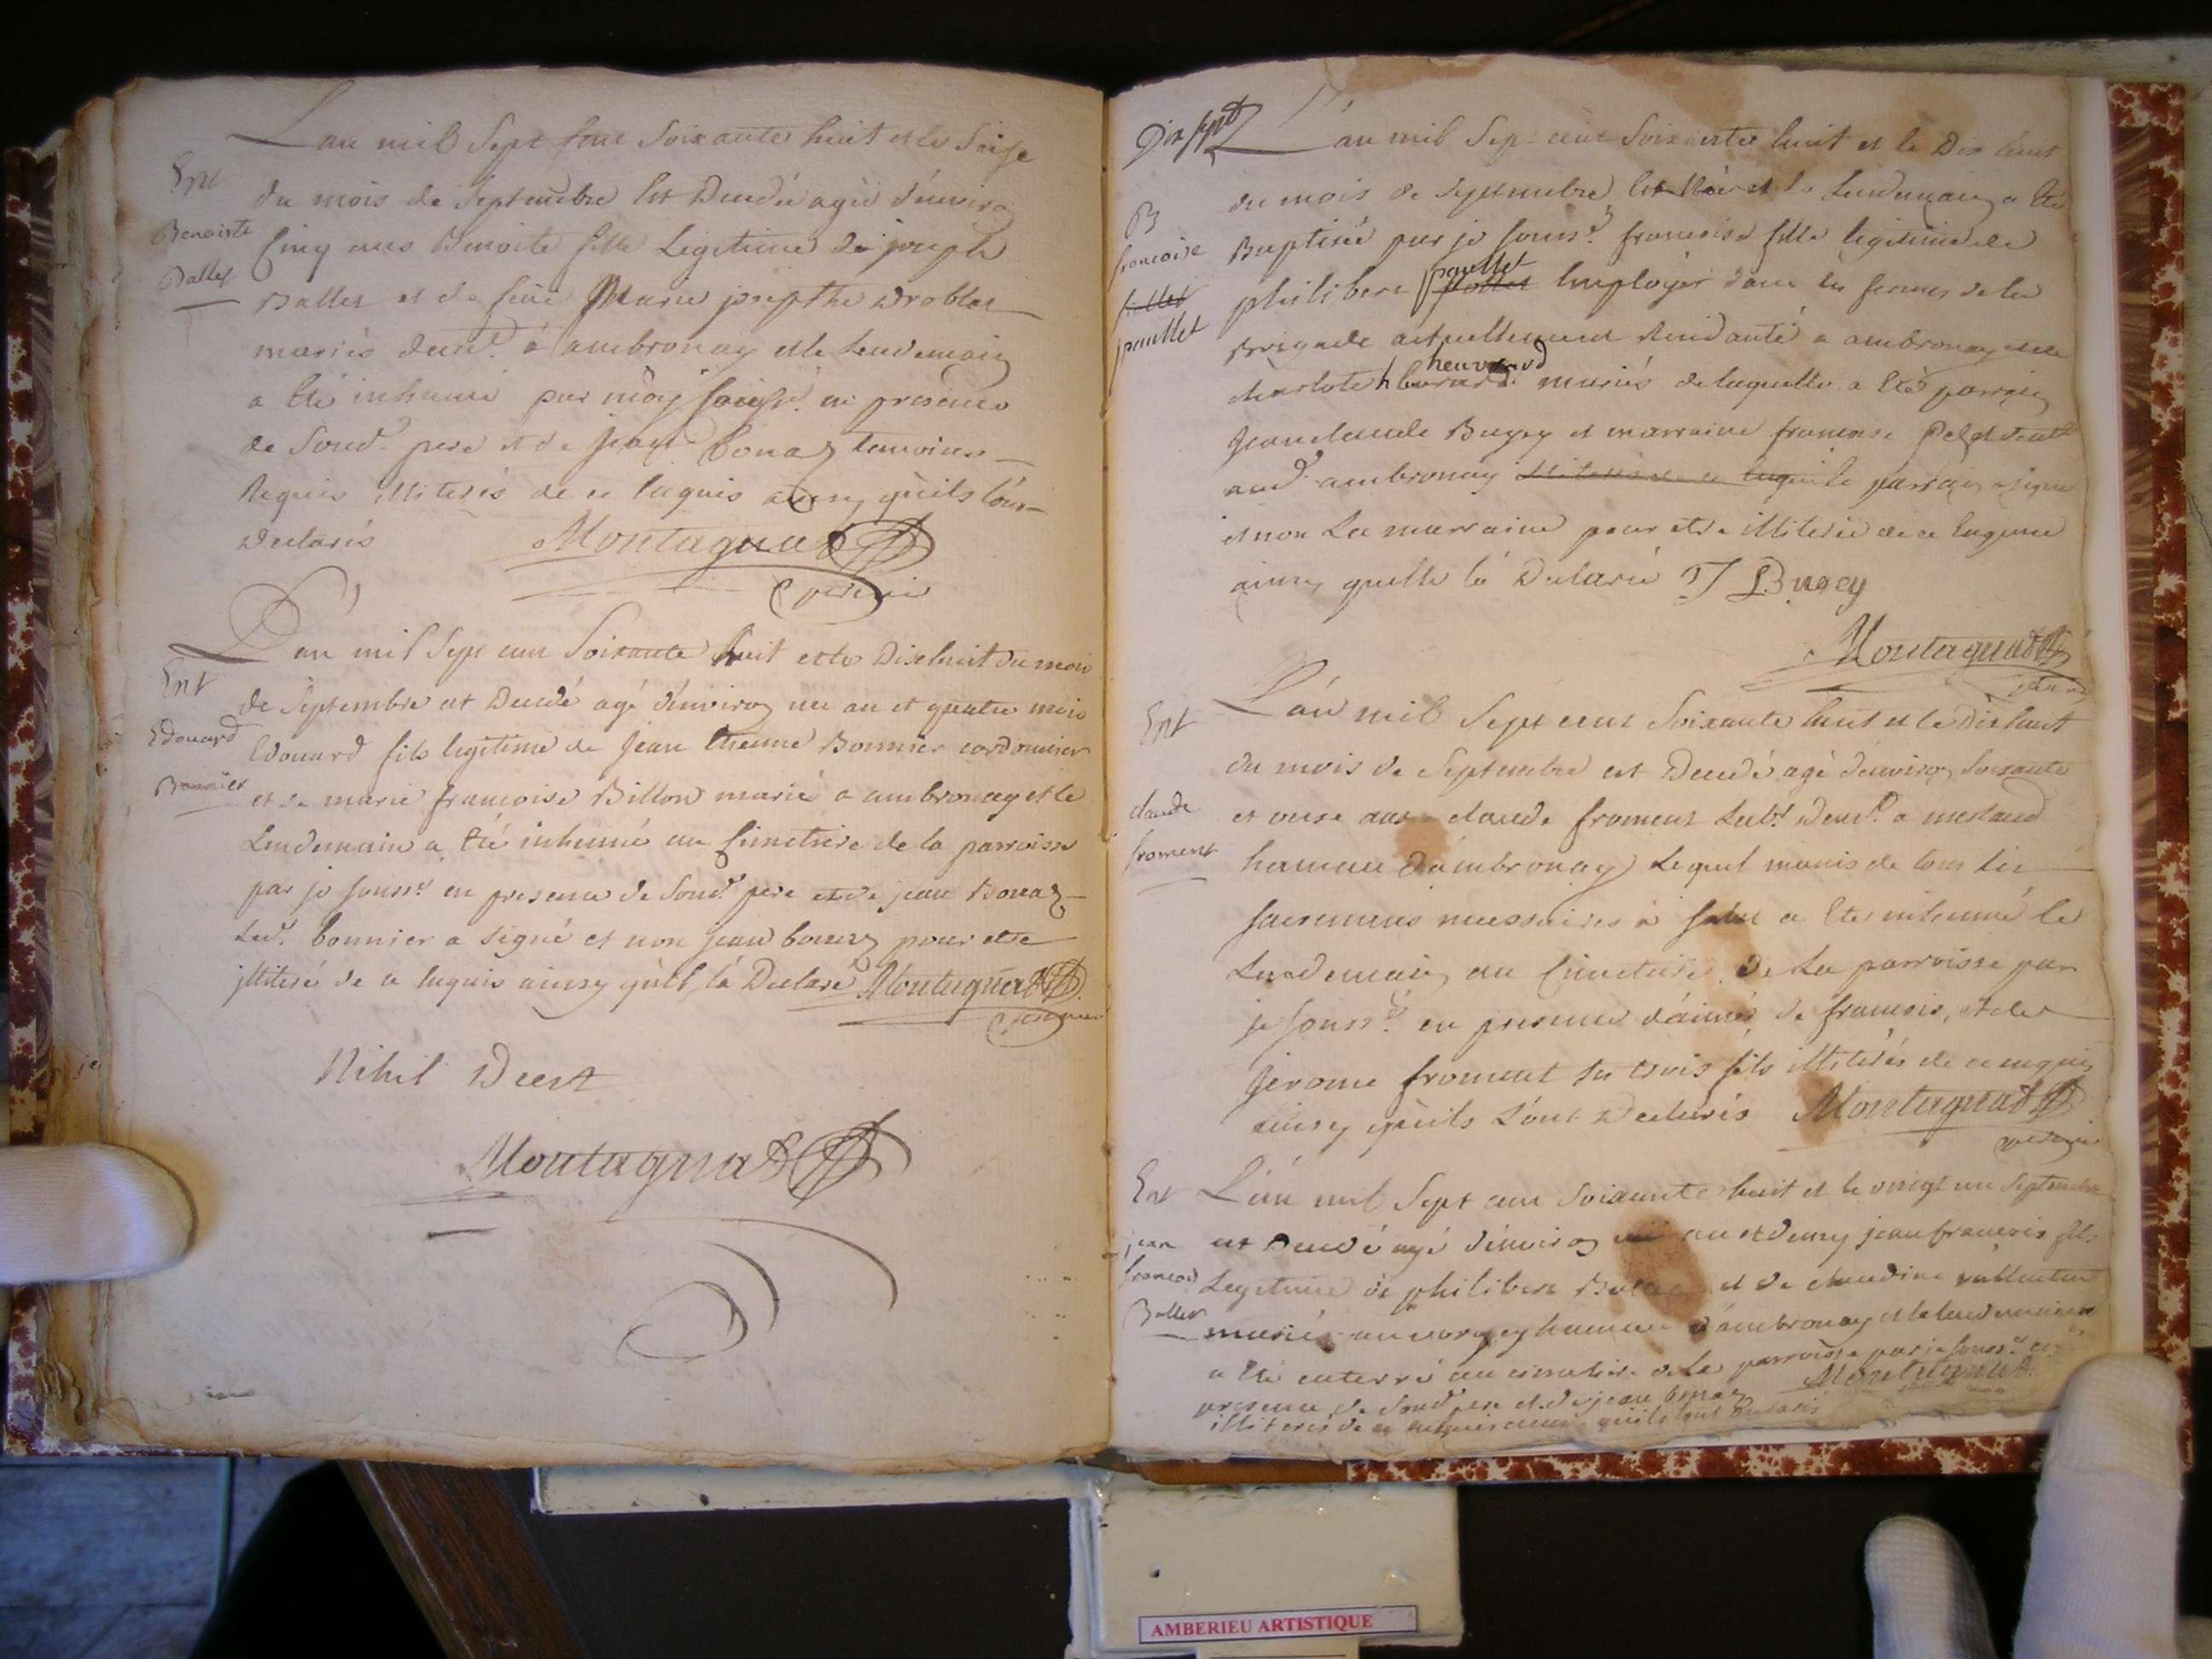 L'an mil Sept Cent Soixante huit et le Seise
Ent
du mois de Septembre Est Decedée agée d'environ
Benoiste
Cinq ans Benoite fille Legitime de joseph
Ballet
Ballet et de feüe Marie josepthe
mariés demt. à ambronay et le Lendemain
a Eté inhumé par moy soussé. en presence
de Soud. pere et de jean Bonaz temoins
Requis illiterés de ce Enquis ainsy qu'ils l'ont
Declarés Montagnat
vicaire
L'an mil Sept cent Soixante huit et le Dixhuit du mois
Ent
de Septembre est Decedé agé d'environ un an et quatre mois
Edouard
Edouard fils legitime de jean Etienne Bonnier cordonnier
Bonnier
et de marie francoise Billon marié a ambronay et le
Lendemain a Eté inhumé au Cimetiere de la parroisse
par je souss.é en presence de Soud. pere et de jean Bonaz
Led. bonnier a signé et non jean bonaz pour etre
jlliteré de ce Enquis ainsy qu'il l'a Declaré Montagnat
vicaire
Nihil Deest
Montagnat
Dix sept
L'an mil Sept cent Soixante huit et le Dix huit
du mois de Septembre Est Née et le Lendemain a Eté
B
francoise
Baptisée par je souss.é francoise fille legitime de
paullet
philibert Employer dans les fermes de la
paullet
Brigade actuellement Residante a ambronay et de
heuvrard
charlote mariés de laquelle a Eté parrain
jean claude Bugey et marraine francoise demt.
aud. ambronay le parrain a signé
et non La marraine pour etre illiterée de ce Enquise
ainsy quelle la Declarée J Bugey
Montagnat
vicaire
Ent
L'an mil Sept cent Soixante huit et le Dix huit
du mois de Septembre est Decedé agé d'environ Soixante
claude
et onse ans claude froment demt. a merland
froment
hameau d'ambronay Lequel munis de tous les
sacremens necessaires à salut a Eté inhumé le
Lendemain au Cimetiere de La parroisse par
je Souss.é en presence d'aimé, de francois, et de
jerome froment ses trois fils illiterés de ce enquis
ainsy qu'ils L'ont Declarés Montagnat
vicaire
Ent
L'an mil Sept cent Soixante huit et le vingt un Septembre
jean
est Decedé agé d'environ un an et demy jean francois fils
francois
Legitime de philibert Ballet et de claudine
Ballet
mariés hameau d'ambronay et le lendemain
a Eté enterré au cimetiere de la parroisse par je souss.é en
presence de Soud. pere et de jean bonaz Montagnat
illiterés de ce enquis ainsi qu'ils l'ont Declarés
AMBERIEU ARTISTIQUE